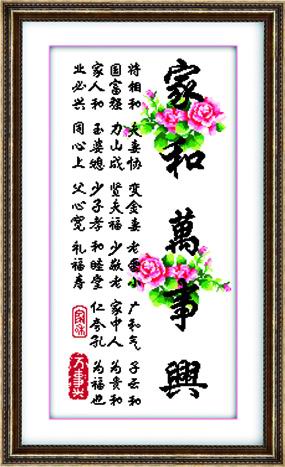 家和萬事興
将相和 夫妻协 变金妻 老爱小 广和气 子云和
国富强 力山成 贤夫福 少敬老 家中人 为贵和
家人和 玉婆媳 少子孝 和睦堂 仁孝孔 为福也
业必兴 同心上 父心宽 礼福寿
家和
万事兴